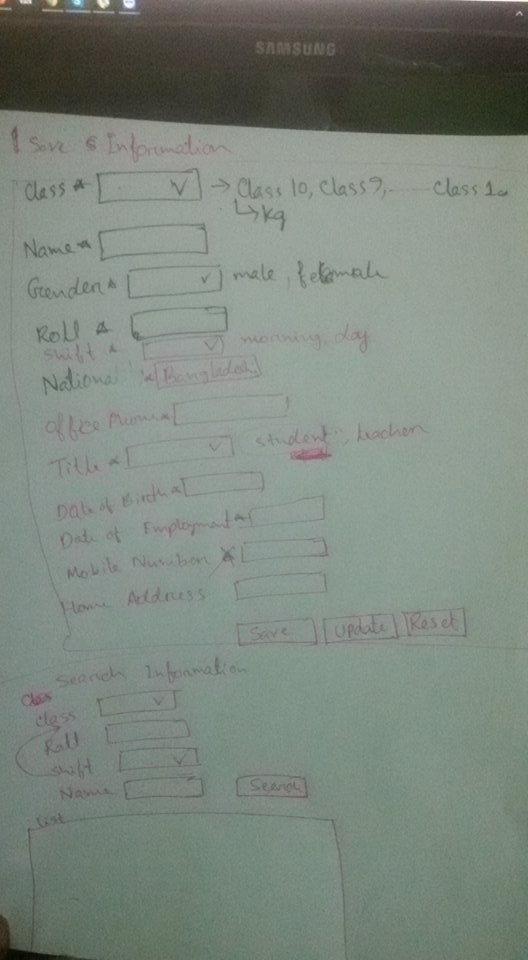 SAMSUNG
Save & Information
Class * → Class 10, Class 9, ...... Class 1
↳ Kg
Name *
Gender * male, female
Roll *
Shift * morning, day
National * Bangladesh
Office Phone *
Title * student, teacher
Date of Birth *
Date of Employment *
Mobile Number *
Home Address
Save Update Reset
Search Information
Class
Roll
Shift
Name Search
List